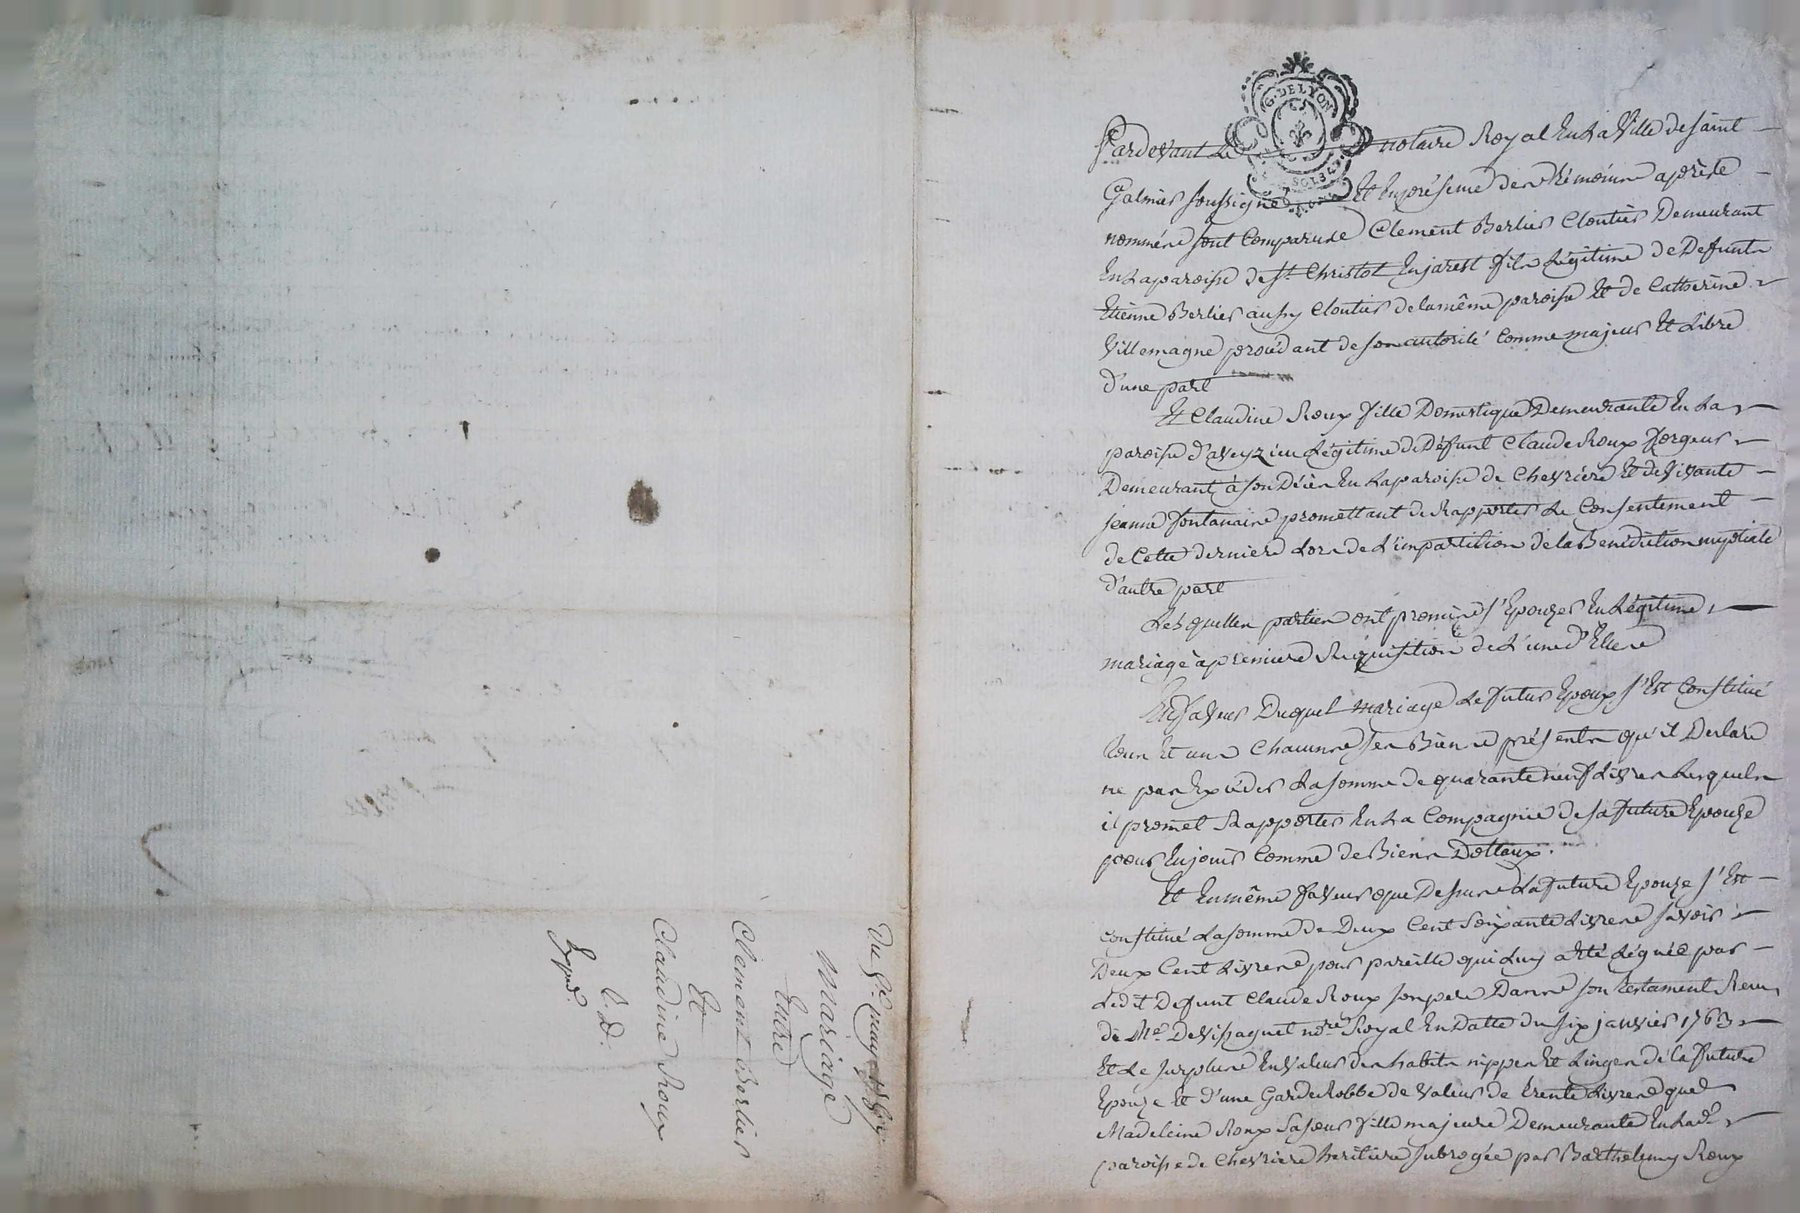 Du 9e may
mariage
Entre
Clement Berlier
Et
Claudine Roux
C. D.
Expné.
G. DE LYON
SOLS
Pardevant Le notaire Royal En La Ville de saint
Galmier soussigné Et En présence des témoins aprèz le
nommés sont comparus Clement Berlier Cloutier Demeurant
En La paroisse de st Christot En jarest fils Légitime de Defunts
Etienne Berlier aussy Cloutier de la même paroisse Et de Catherine
Villemagne procédant de son autorité Comme majeur Et Libre
d'une part
Et Claudine Roux fille Domestique Demeurante En La
paroisse d'aveyzieu Légitime de Défunt Claude Roux forgeur
Demeurant à son Décès En La paroisse de Chevrières Et de Vivante
jeanne fontanaire promettant de Rapporter Le Consentement
de Cette derniere Lors de L'impartition de la Benediction nuptiale
d'autre part
Lesquelles parties ont promis s'Epouzer En Légitime
mariage à premiere Réquisition de L'une d'Elles
En faveur Duquel mariage Le futur Epoux s'Est Constitué
tous Et uns Chacuns ses Biens présents qu'il Declare
ne pas Excéder La somme de quarante neuf Livres Lesquels
il promet Rapporter En La Compagnie de sa future Epouze
pour En jouir Comme de Biens Dottaux.
Et En même faveur que Dessus La future Epouze s'Est
constitué La somme de Deux Cent soixante Livres savoir
Deux Cent Livres pour pareille qui Luy a Eté Léguée par
Ledit Defunt Claude Roux son pere Dans son testament Reçu
de Me. Devissaguet nore Royal En Datte du six janvier 1763
Et Le surplus En Valeur des habits nippes Et Linges de la future
Epouze Et d'une Garde Robbe de Valeur de trente Livres que
Madeleine Roux sa sœur fille majeure Demeurante En Lade
paroisse de Chevrieres heritiere subrogée par Barthelemy Roux